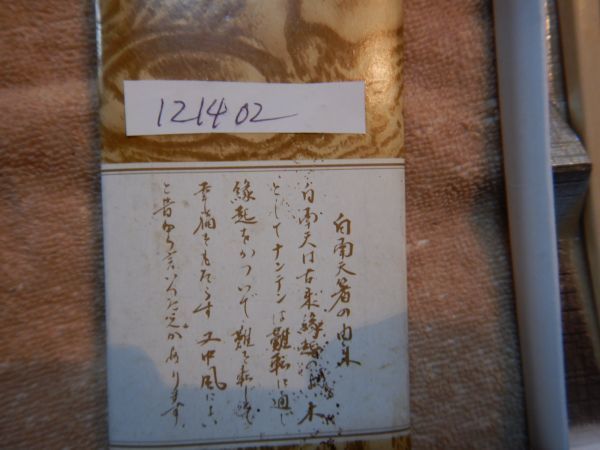 121402
白南天箸の由来
白南天は古来縁起の木
としてナンテンは難転に通じ
縁起をかついで難を転じて
幸福をもたらす 又中風によい
と昔から言い伝えがあります